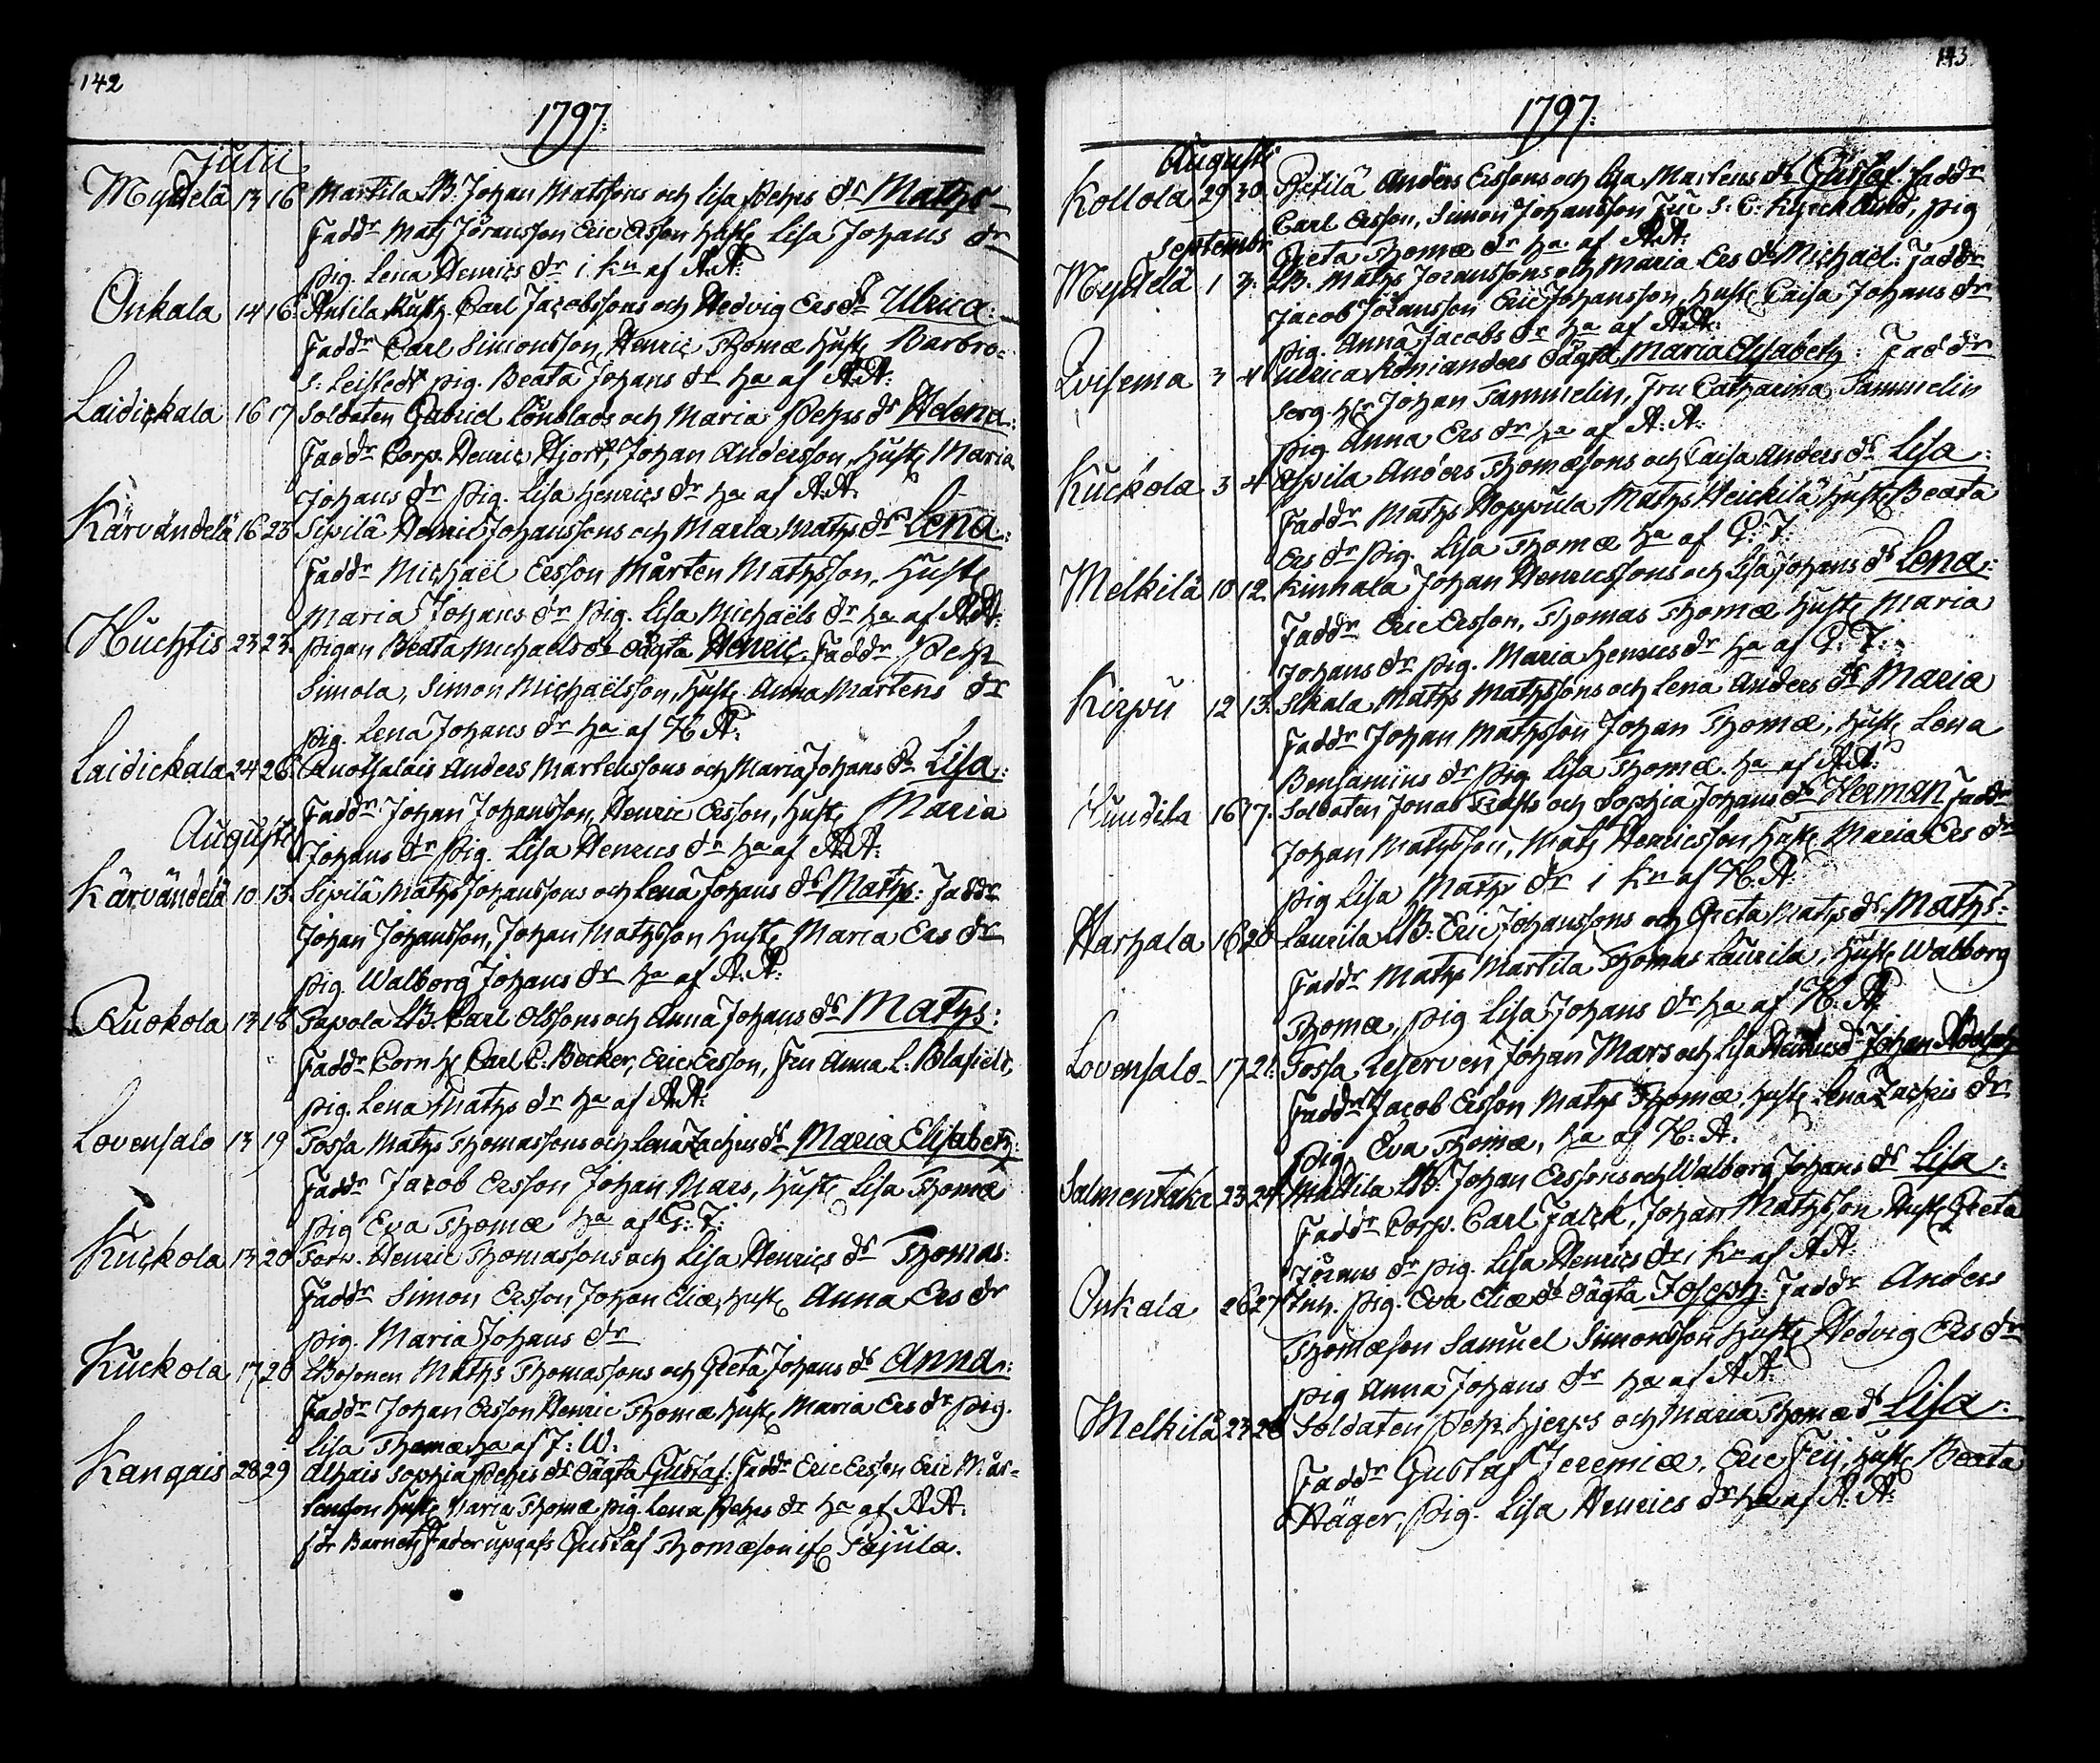 142
1797.
Julii
Myttelä 13 16 Martila LB. Johan Matssons och Lisa Pehrs dr Mathz
Faddr Mats Jöransson Eric Ersson Hustr Lisa Johans dr
pig. Lena Henrics dr i kn af A.A:
Onkala 14 16 Antila Hustr. Carl Jacobssons och Hedvig Ers dr Ulrica:
Faddr Carl Simonsson, Henric Thomæ Hustr Barbro
S: Leistedt pig. Beata Johans dr ha af A.A:
Laidickala 16 17 Soldaten Gabriel Lönblads och Maria Pehrs dr Helena:
Faddr Corp. Henric Hjort, Johan Andersson, Hustr Maria
Johans dr pig. Lisa Henrics dr ha af A.A.
Kärvändelä 16 23 Sipilä Henric Johanssons och Maria Maths dr Lena:
Faddr Michaël Ersson Mårten Mathsson, Hustr
Maria Johans dr pig. Lisa Michaëls dr ha af A.A:
Huchtis 23 23 Pigan Beata Michaels dr oägta Henric. Faddr Pehr
Simola, Simon Michaëlsson, Hustr Anna Mårtens dr
pig. Lena Johans dr ha af H.A:
Laidickala 24 26 Anders Mårtenssons och Maria Johans dr Lisa:
Faddr Johan Johansson, Henric Ersson, Hustr Maria
Augusti
Johans dr pig. Lisa Henrics dr ha af A.A:
Kärvändelä 10 13 Sipilä Maths Johanssons och Lena Johans dr Maths: Faddr
Johan Johansson, Johan Mathsson Hustr Maria Ers dr
pig. Walborg Johans dr ha af A.A:
Ruokola 13 18 Papola LB. Carl Olssons och Anna Johans dr Maths:
Faddr Corn H Carl C: Becker, Eric Ersson, Fru Anna L: Blafield,
pig. Lena Maths dr ha af A.A:
Lovensalo 13 19 Tossa Maths Thomassons och Lena Zachris dr Maria Elisabeth:
Faddr Jacob Ersson Johan Mars, Hustr Lisa Thomæ
pig Eva Thomæ ha af G: T:
Kuckola 13 20 Torv. Henric Thomassons och Lisa Henrics dr Thomas:
Faddr Simon Ersson, Johan Eliæ, Hustr Anna Ers dr
pig. Maria Johans dr
Kuckola 17 20 Maths Thomassons och Greta Johans dr Anna:
Faddr Johan Ersson Henric Thomæ Hustr Maria Ers dr pig.
Lisa Thomæ ha af J: W:
Kangais 28 29 Alhais Sophia Pehrs dr oägta Gustaf: Faddr Eric Ersson Eric Mår-
tensson Hustr Maria Thomæ pig. Lena Pehrs dr ha af A.A:
för Barnets Fader upgafs Gustaf Thomæson ifr Pajula.
143
1797.
Augusti
Kollola 29 30 Anders Erssons och Lisa Mårtens dr Gustaf. Faddr
Carl Ersson, Simon Johansson Fru S: C: Kyrcklund, pig
Septembr
Greta Thomæ dr ha af A.A:
Myttelä 1 3 LB. Maths Jöranssons och Maria Ers dr Michael: Faddr
Jacob Jöransson Eric Johansson, Hustr Caisa Johans dr
pig. Anna Jacobs dr ha af A.A:
3 4 Ulrica Königanders oägta Maria Elisabeth: Faddr
Serg. Hr Johan Tammelin, Fru Catharina Tammelin
pig. Anna Ers dr ha af A. A.
Kuckola 3 4 Anders Thomæsons och Caisa Anders dr Lisa:
Faddr Maths Hoppula Maths Heickilä Hustr Beata
Ers dr pig. Lisa Thomæ ha af G: T:
Melkilä 10 12 Kinhala Johan Henricssons och Lisa Johans dr Lena:
Faddr Eric Ersson, Thomas Thomæ Hustr Maria
Johans dr pig. Maria Henrics dr ha af G: T:
Kirpu 12 13 Maths Mathssons och Lena Anders dr Maria
Faddr Johan Mathsson Johan Thomæ, Hustr Lena
Benjamins dr pig. Lisa Thomæ ha af A.A:
16 17 Soldaten Jonas och Sophia Johans dr Herman Faddr
Johan Mathsson, Mats Henricsson Hustr Maria Ers dr
pig Lisa Maths dr i kn af H.A:
Harhala 16 20 Laurila LB: Eric Johanssons och Greta Maths dr Maths:
Faddr Maths Martila Thomas Laurila, Hustr Walborg
Thomæ, pig Lisa Johans dr ha af H. A:
Lovensalo 17 21 Tossa Reserven Johan Mars och Lisa Henrics dr Johan Adolph
Faddr Jacob Ersson Maths Thomæ Hustr Lena Zachris dr
pig. Eva Thomæ, ha af H: A.
Salmentaka 23 24 Mattila LB: Johan Erssons och Walborg Johans dr Lisa:
Faddr Corp. Carl Falck, Johan Mathsson Hustr Greta
Jörans dr pig. Lisa Henrics dr i kn af A.A:
Onkala 26 27 Inh. pig. Eva Eliæ dr oägta Joseph: Faddr Anders
Thomæson Samuel Simonsson Hustr Hedvig Ers dr
pig Anna Johans dr ha af A.A:
Melkilä 27 28 Soldaten Pehr Hjerps och Maria Thomæ dr Lisa:
Faddr Gustaf Jeremiæ, Eric Feij, Hustr Beata
Häger, pig. Lisa Henrics dr ha af A. A: